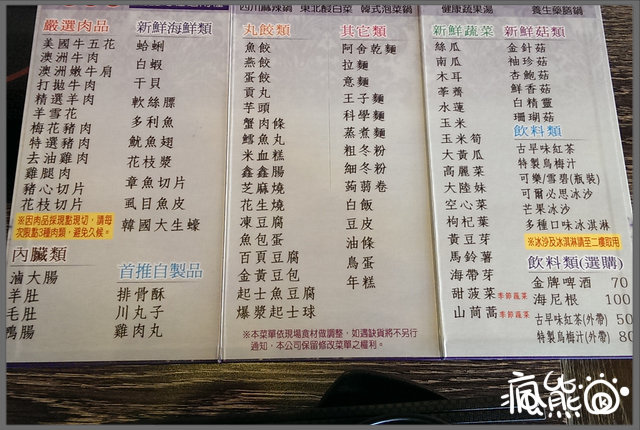 四川麻辣鍋 東北酸白菜 韓式泡菜鍋
健康蔬果湯 養生藥膳鍋
嚴選肉品
美國牛五花
澳洲牛肉
澳洲嫩牛肩
打拋牛肉
精選羊肉
羊雪花
梅花豬肉
特選豬肉
去油雞肉
雞腿肉
豬心切片
花枝切片
※因肉品採現點現切，請每
次限點3種肉類，避免久候。
新鮮海鮮類
蛤蜊
白蝦
干貝
軟絲膘
多利魚
魷魚翅
花枝漿
章魚切片
虱目魚皮
韓國大生蠔
內臟類
滷大腸
羊肚
毛肚
鴨腸
首推自製品
排骨酥
川丸子
雞肉丸
丸餃類
魚餃
燕餃
蛋餃
貢丸
芋頭
蟹肉條
鱈魚丸
米血糕
鑫鑫腸
芝麻燒
花生燒
凍豆腐
魚包蛋
百頁豆腐
金黃豆包
起士魚豆腐
爆漿起士球
其它類
阿舍乾麵
拉麵
意麵
王子麵
科學麵
蒸煮麵
細冬粉
粗冬粉
蒟蒻卷
白飯
豆皮
油條
鳥蛋
年糕
※本菜單依現場食材做調整，如遇缺貨將不另行
通知，本公司保留修改菜單之權利。
新鮮蔬菜
絲瓜
南瓜
木耳
茅蕎
水蓮
玉米
玉米筍
大黃瓜
高麗菜
大陸妹
空心菜
枸杞葉
黃豆芽
馬鈴薯
海帶芽
甜菠菜 季節蔬菜
山茼蒿 季節蔬菜
新鮮菇類
金針菇
袖珍菇
杏鮑菇
鮮香菇
白精靈
珊瑚菇
飲料類
古早味紅茶
特製烏梅汁
可樂/雪碧(瓶裝)
可爾必思冰沙
芒果冰沙
多種口味冰淇淋
※冰沙及冰淇淋請至二樓取用
飲料類(選購)
金牌啤酒 70
海尼根 100
古早味紅茶(外帶) 50
特製烏梅汁(外帶) 80
瘋熊